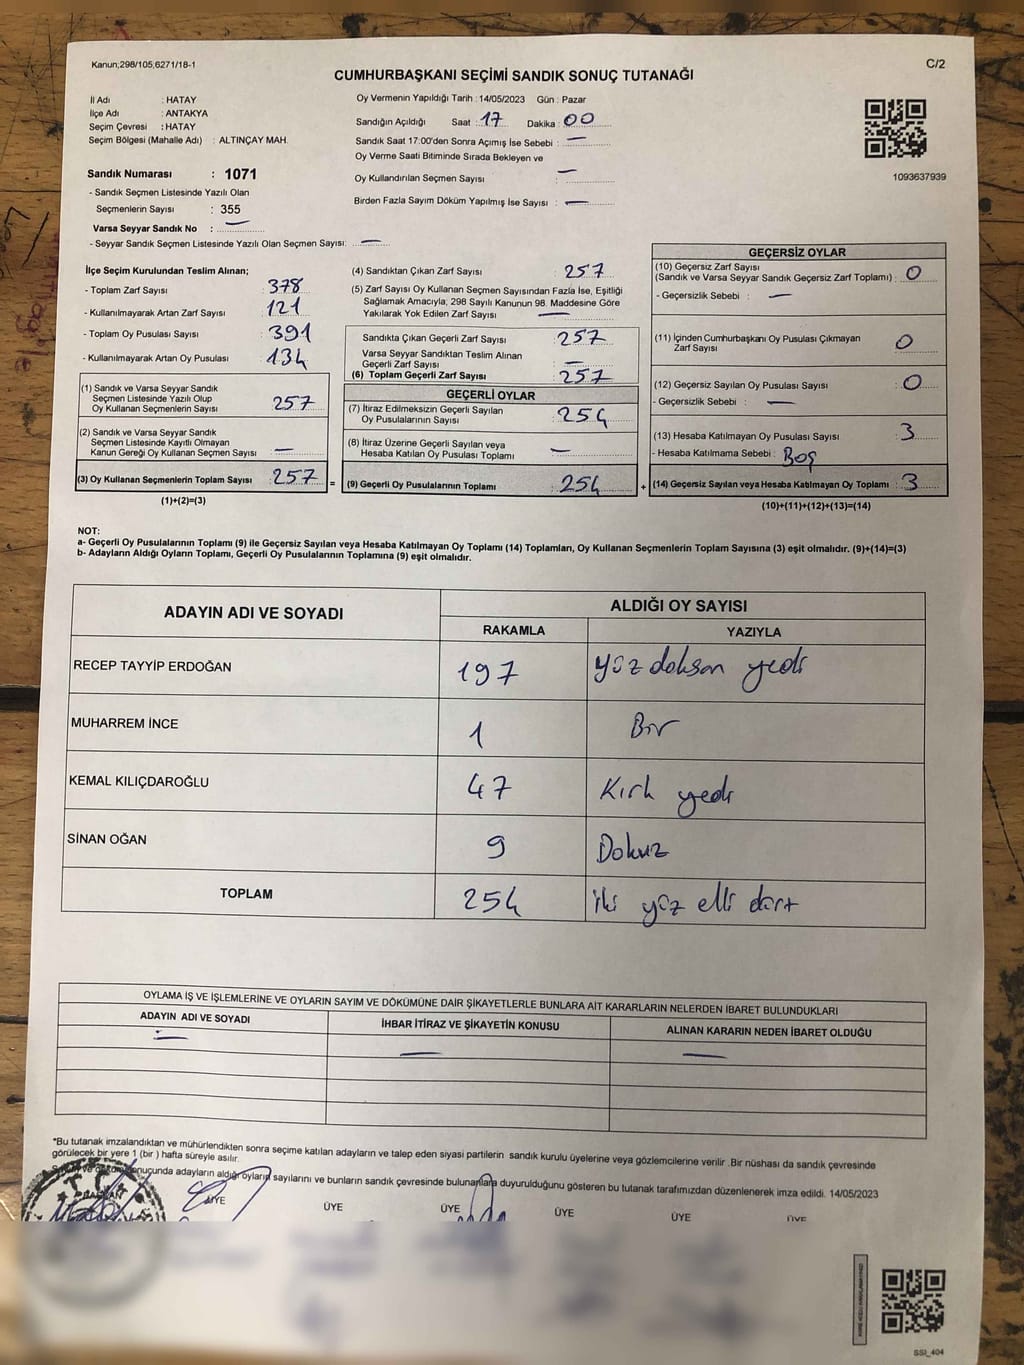 Kanun;298/105,6271/18-1
C/2
CUMHURBAŞKANI SEÇİMİ SANDIK SONUÇ TUTANAĞI
İl Adı : HATAY
İlçe Adı : ANTAKYA
Seçim Çevresi : HATAY
Seçim Bölgesi (Mahalle Adı) : ALTINÇAY MAH.
Sandık Numarası : 1071
- Sandık Seçmen Listesinde Yazılı Olan
Seçmenlerin Sayısı : 355
Varsa Seyyar Sandık No : —
- Seyyar Sandık Seçmen Listesinde Yazılı Olan Seçmen Sayısı: —
Oy Vermenin Yapıldığı Tarih : 14/05/2023 Gün : Pazar
Sandığın Açıldığı Saat : 17 Dakika : 00
Sandık Saat 17:00'den Sonra Açımış İse Sebebi : —
Oy Verme Saati Bitiminde Sırada Bekleyen ve
Oy Kullandırılan Seçmen Sayısı : —
Birden Fazla Sayım Döküm Yapılmış İse Sayısı : —
1093637939
İlçe Seçim Kurulundan Teslim Alınan;
- Toplam Zarf Sayısı : 378
- Kullanılmayarak Artan Zarf Sayısı : 121
- Toplam Oy Pusulası Sayısı : 391
- Kullanılmayarak Artan Oy Pusulası : 134
(1) Sandık ve Varsa Seyyar Sandık
Seçmen Listesinde Yazılı Olup
Oy Kullanan Seçmenlerin Sayısı : 257
(2) Sandık ve Varsa Seyyar Sandık
Seçmen Listesinde Kayıtlı Olmayan
Kanun Gereği Oy Kullanan Seçmen Sayısı : —
(3) Oy Kullanan Seçmenlerin Toplam Sayısı : 257 =
(1)+(2)=(3)
(4) Sandıktan Çıkan Zarf Sayısı : 257
(5) Zarf Sayısı Oy Kullanan Seçmen Sayısından Fazla İse, Eşitliği
Sağlamak Amacıyla; 298 Sayılı Kanunun 98. Maddesine Göre
Yakılarak Yok Edilen Zarf Sayısı : —
Sandıkta Çıkan Geçerli Zarf Sayısı : 257
Varsa Seyyar Sandıktan Teslim Alınan
Geçerli Zarf Sayısı : —
(6) Toplam Geçerli Zarf Sayısı : 257
GEÇERLİ OYLAR
(7) İtiraz Edilmeksizin Geçerli Sayılan
Oy Pusulalarının Sayısı : 254
(8) İtiraz Üzerine Geçerli Sayılan veya
Hesaba Katılan Oy Pusulası Toplamı : —
(9) Geçerli Oy Pusulalarının Toplamı : 254 +
GEÇERSİZ OYLAR
(10) Geçersiz Zarf Sayısı
(Sandık ve Varsa Seyyar Sandık Geçersiz Zarf Toplamı) : 0
- Geçersizlik Sebebi : —
(11) İçinden Cumhurbaşkanı Oy Pusulası Çıkmayan
Zarf Sayısı : 0
(12) Geçersiz Sayılan Oy Pusulası Sayısı : 0
- Geçersizlik Sebebi : —
(13) Hesaba Katılmayan Oy Pusulası Sayısı : 3
- Hesaba Katılmama Sebebi : Boş
(14) Geçersiz Sayılan veya Hesaba Katılmayan Oy Toplamı : 3
(10)+(11)+(12)+(13)=(14)
NOT:
a- Geçerli Oy Pusulalarının Toplamı (9) ile Geçersiz Sayılan veya Hesaba Katılmayan Oy Toplamı (14) Toplamları, Oy Kullanan Seçmenlerin Toplam Sayısına (3) eşit olmalıdır. (9)+(14)=(3)
b- Adayların Aldığı Oyların Toplamı, Geçerli Oy Pusulalarının Toplamına (9) eşit olmalıdır.
ADAYIN ADI VE SOYADI
ALDIĞI OY SAYISI
RAKAMLA YAZIYLA
RECEP TAYYİP ERDOĞAN 197 yüz doksan yedi
MUHARREM İNCE 1 Bir
KEMAL KILIÇDAROĞLU 47 Kırk yedi
SİNAN OĞAN 9 Dokuz
TOPLAM 254 iki yüz elli dört
OYLAMA İŞ VE İŞLEMLERİNE VE OYLARIN SAYIM VE DÖKÜMÜNE DAİR ŞİKAYETLERLE BUNLARA AİT KARARLARIN NELERDEN İBARET BULUNDUKLARI
ADAYIN ADI VE SOYADI İHBAR İTİRAZ VE ŞİKAYETİN KONUSU ALINAN KARARIN NEDEN İBARET OLDUĞU
— — —
*Bu tutanak imzalandıktan ve mühürlendikten sonra seçime katılan adayların ve talep eden siyasi partilerin sandık kurulu üyelerine veya gözlemcilerine verilir .Bir nüshası da sandık çevresinde
görülecek bir yere 1 (bir ) hafta süreyle asılır.
sonuçunda adayların aldığı oyların sayılarını ve bunların sandık çevresinde bulunanlara duyurulduğunu gösteren bu tutanak tarafımızdan düzenlenerek imza edildi. 14/05/2023
T.C.
BAŞKAN ÜYE ÜYE ÜYE ÜYE ÜYE ÜYE
SSI_404